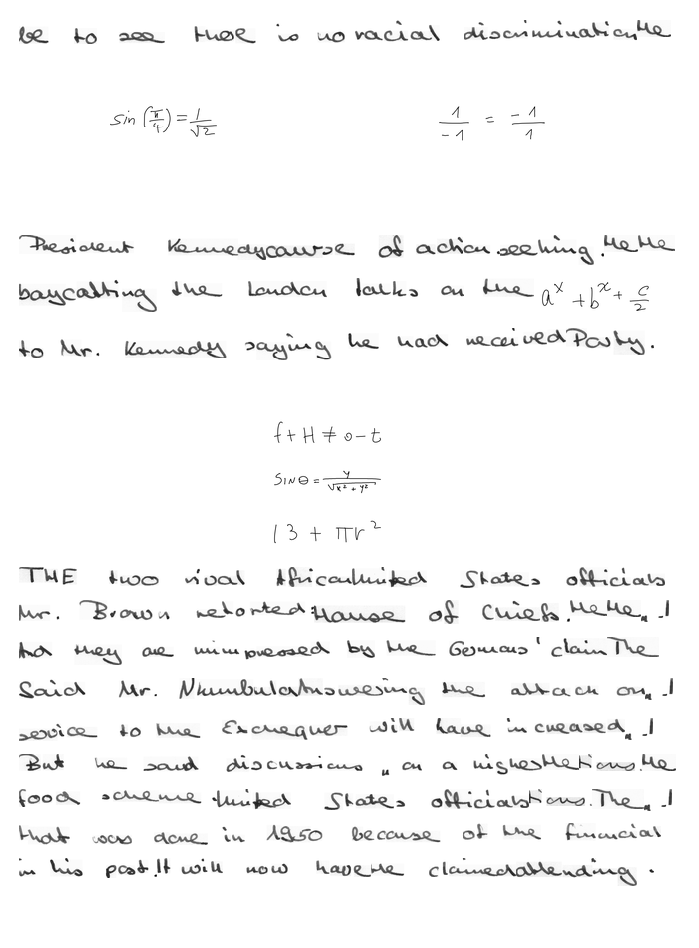 be to see there is no racial discrimination, He
sin(π/4) = 1/√2
1/-1 = -1/1
President Kennedy course of action seeking. He He
boycotting the London talks on the a^x + b^x + c/2
to Mr. Kennedy saying he had received Party.
f + H ≠ 0 - t
SIN θ = y/√(x² + y²)
13 + πr²
THE two rival African United States officials
Mr. Brown retorted: House of Chiefs. He He " I
And they are unimpressed by the Germans' claim The
Said Mr. Nkumbula Answering the attack on " I
service to the Exchequer will have increased " I
But he said discussions " on a highest He tions. He
food scheme United States officials tions. The " I
that was done in 1950 because of the financial
in his post. It will now have He claimed attending.